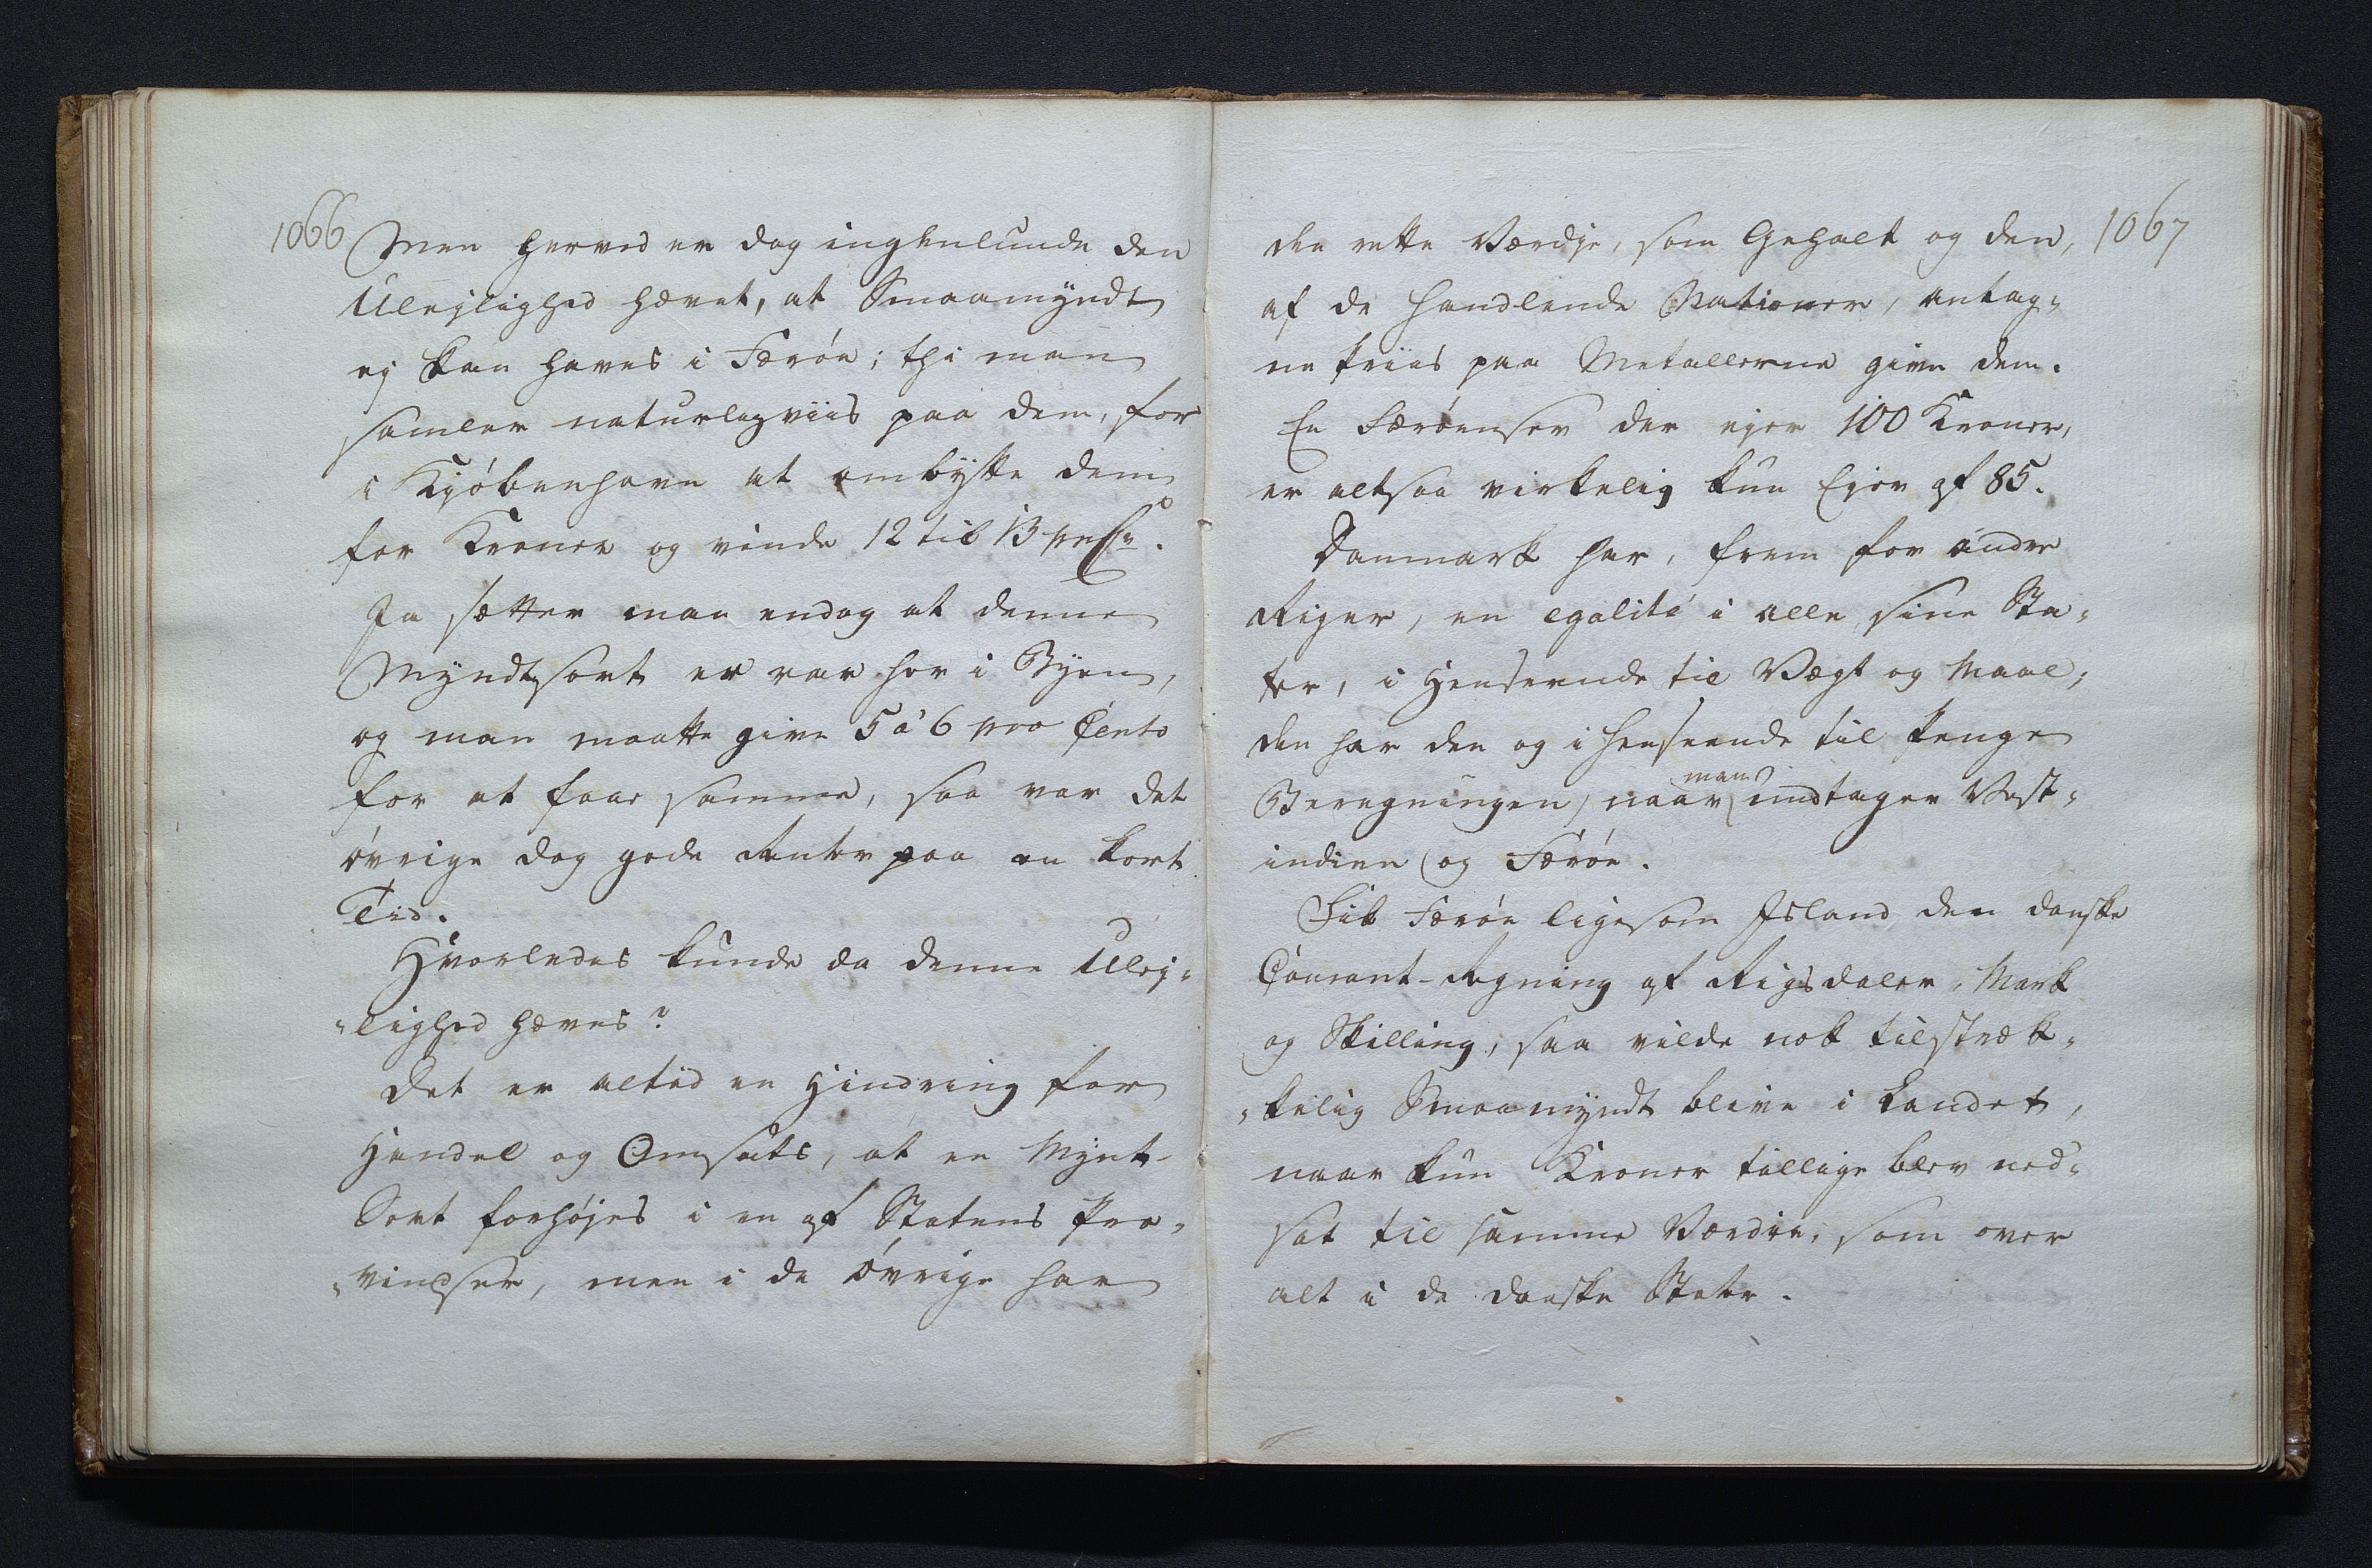 1066
Men herved er dog ingenlunde den
Ulejlighed hævet, at Smaamyndt
ej kan haves i Færöe; thi man
samler naturligviis paa dem, for
i Kjöbenhavn at ombÿtte dem
for Kroner og vinde 12 til 13 prCto.
Ja sætter man endog at denne
Myndtsort er rar her i Byen,
og man maatte give 5 á 6 pro Cento
for at faae samme, saa var det
övrige dog gode Renter paa en kort
Tid.
Hvorledes kunde da denne Ulej-
-lighed hæves?
Det er altid en Hindring for
Handel og Omsats, at en Mynt-
Sort forhöjes i en af Statens Pro-
-vindser, men i de övrige har
1067
den rette Værdje, som Gehalt og den,
af de handlende Nationer, antag-
ne Priis paa Metallerne give dem.
En Færöenser der ejer 100 Kroner,
er altsaa virkelig kun Ejer af 85.
Danmark har, frem for andre
Riger, en egalité i alle sine Sta-
ter, i Henseende til Vægt og Maal;
den har den og i Henseende til Penge
Beregningen, naar man undtager Vest-
indien og Færöe.
Fik Færöe ligesom Island den danske
Courant-Regning af Rigsdaler, Mark
og Skilling, saa vilde nok tilstræk-
-kelig Smaamyndt blive i Landet,
naar kun Kroner tillige blev ned-
sat til samme Værdie, som over
alt i de danske Stater.